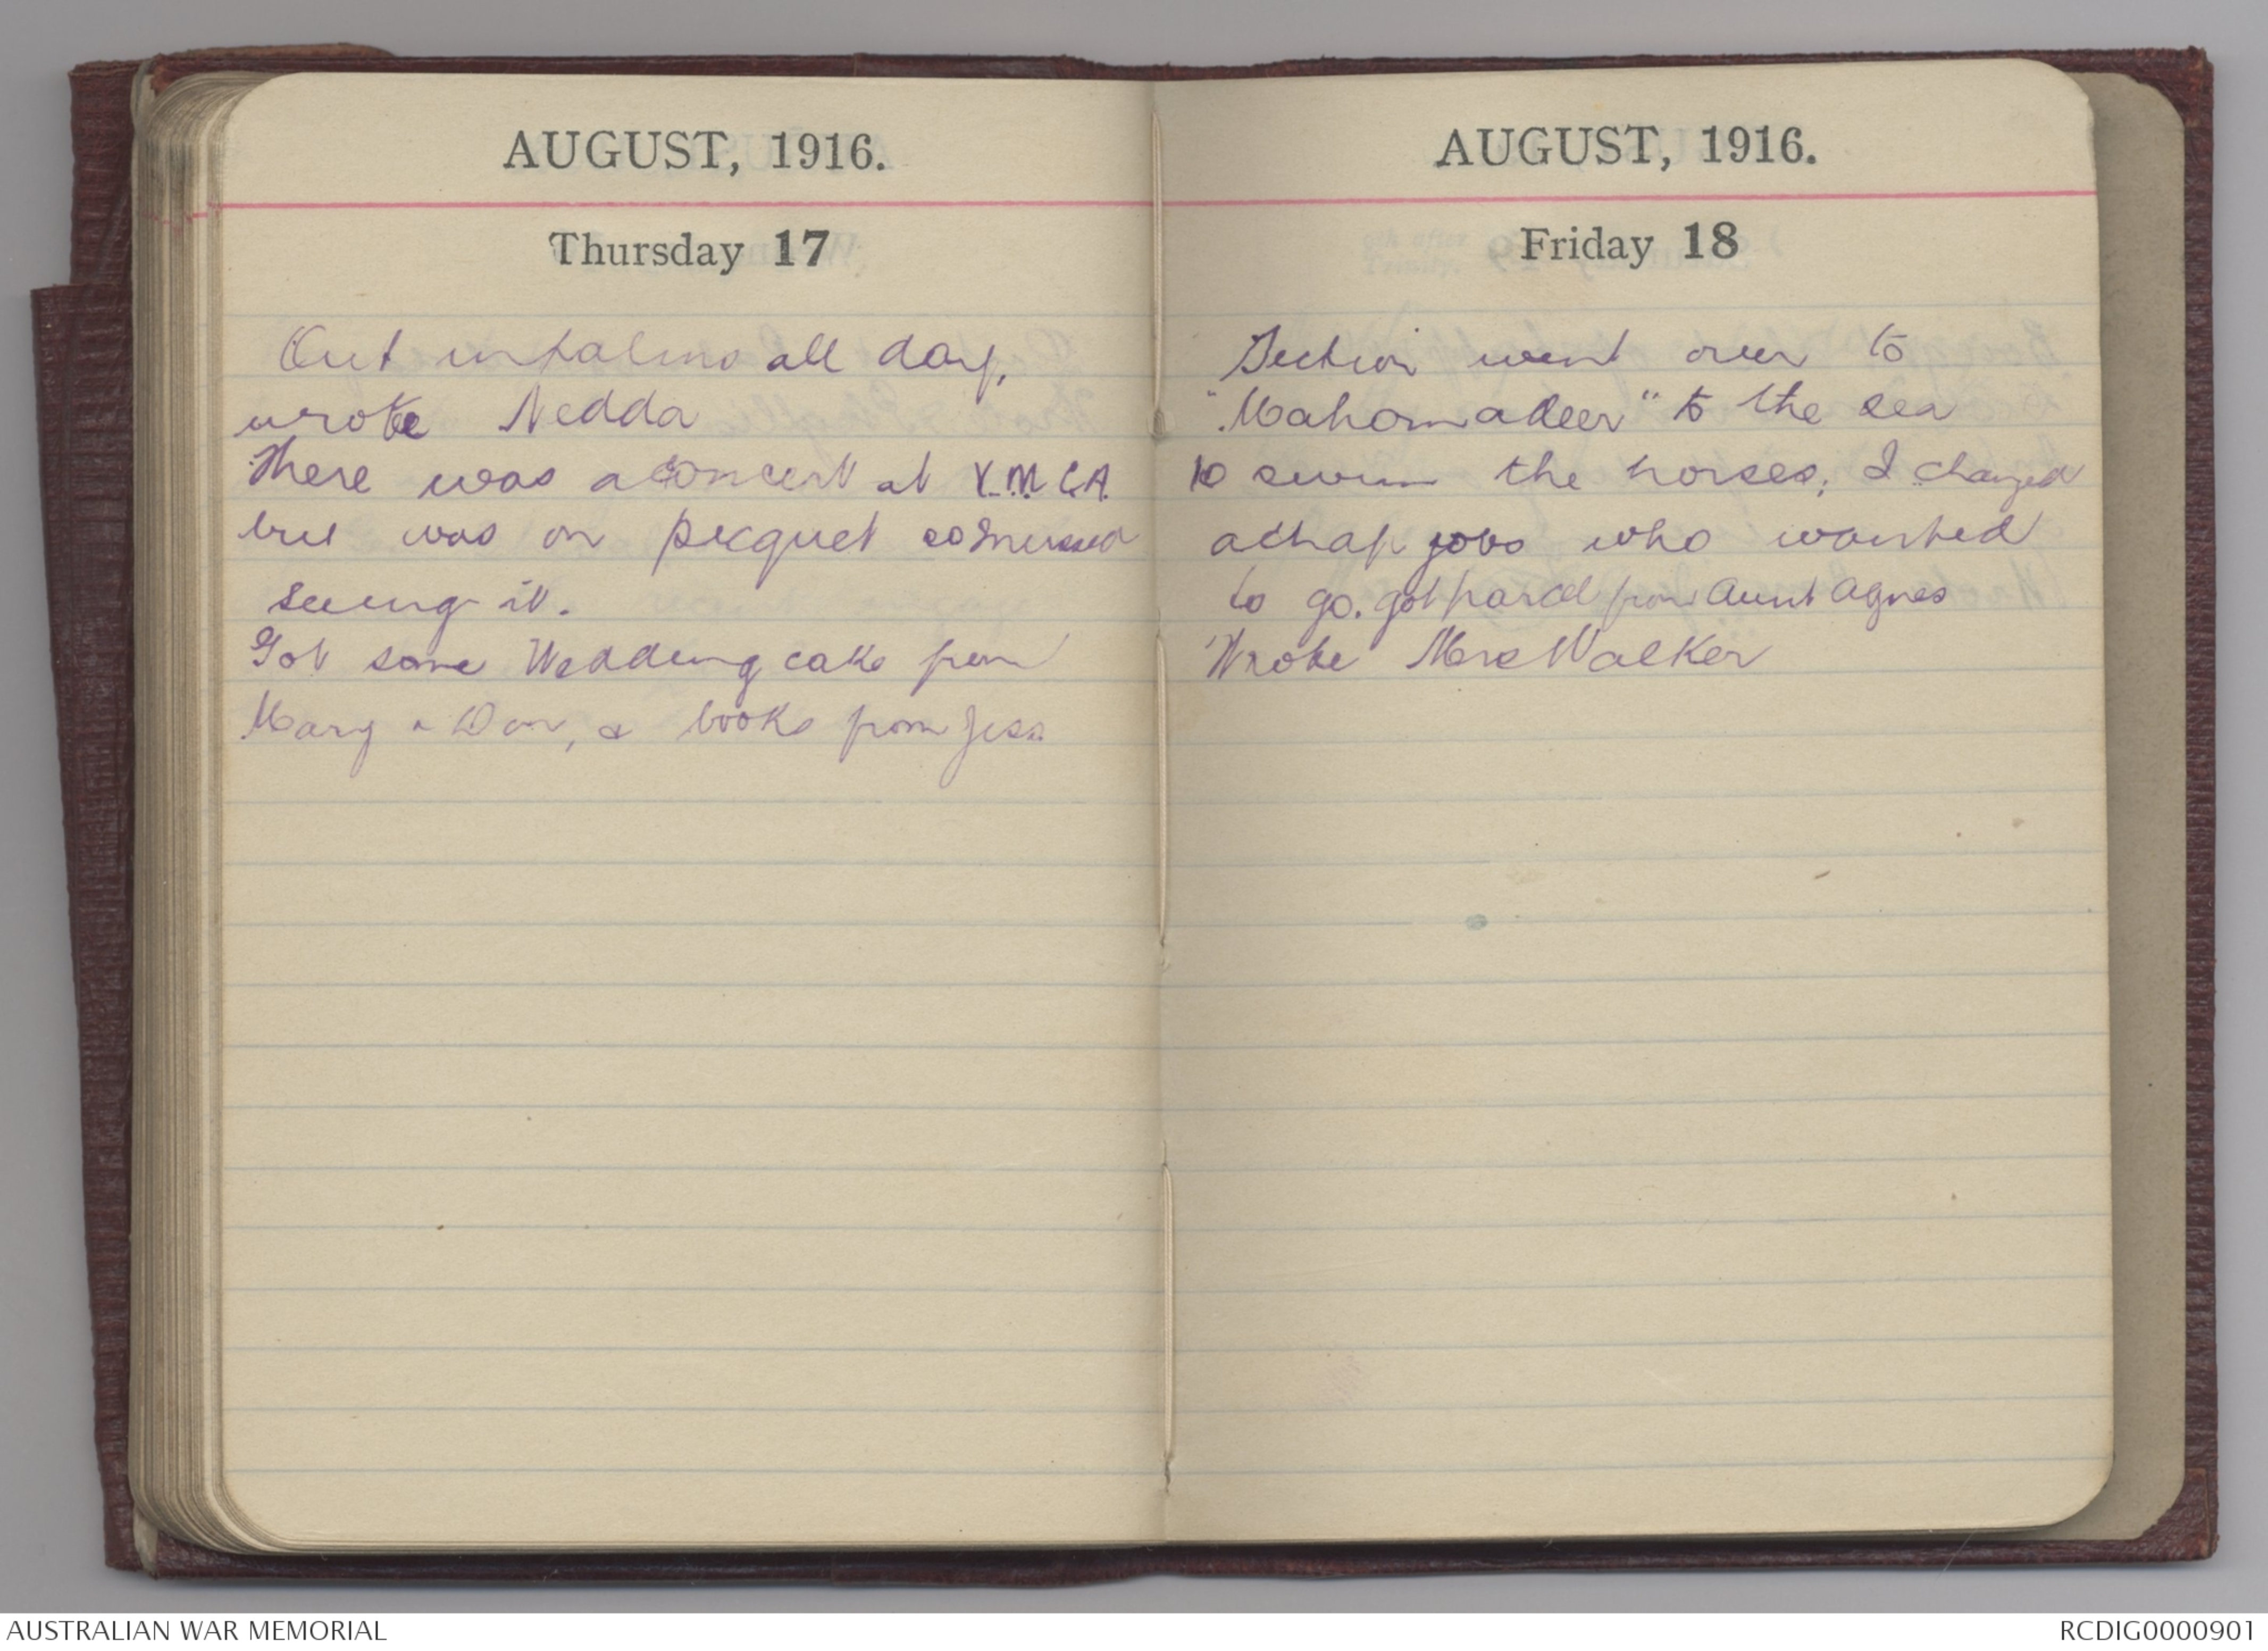 AUGUST, 1916.
Thursday 17
Out in palms all day,
wrote Nedda
There was a concert at Y.M.C.A.
but was on picquet so I missed
seeing it.
Got some Wedding cake from
Mary & Don, & books from Jess
AUGUST, 1916.
Friday 18
Section went over to
"Mahomadeer" to the sea
to swim the horses; I changed
a chap jobs who wanted
to go. got parcel from Aunt Agnes
Wrote Mrs Walker
AUSTRALIAN WAR MEMORIAL
RCDIG0000901